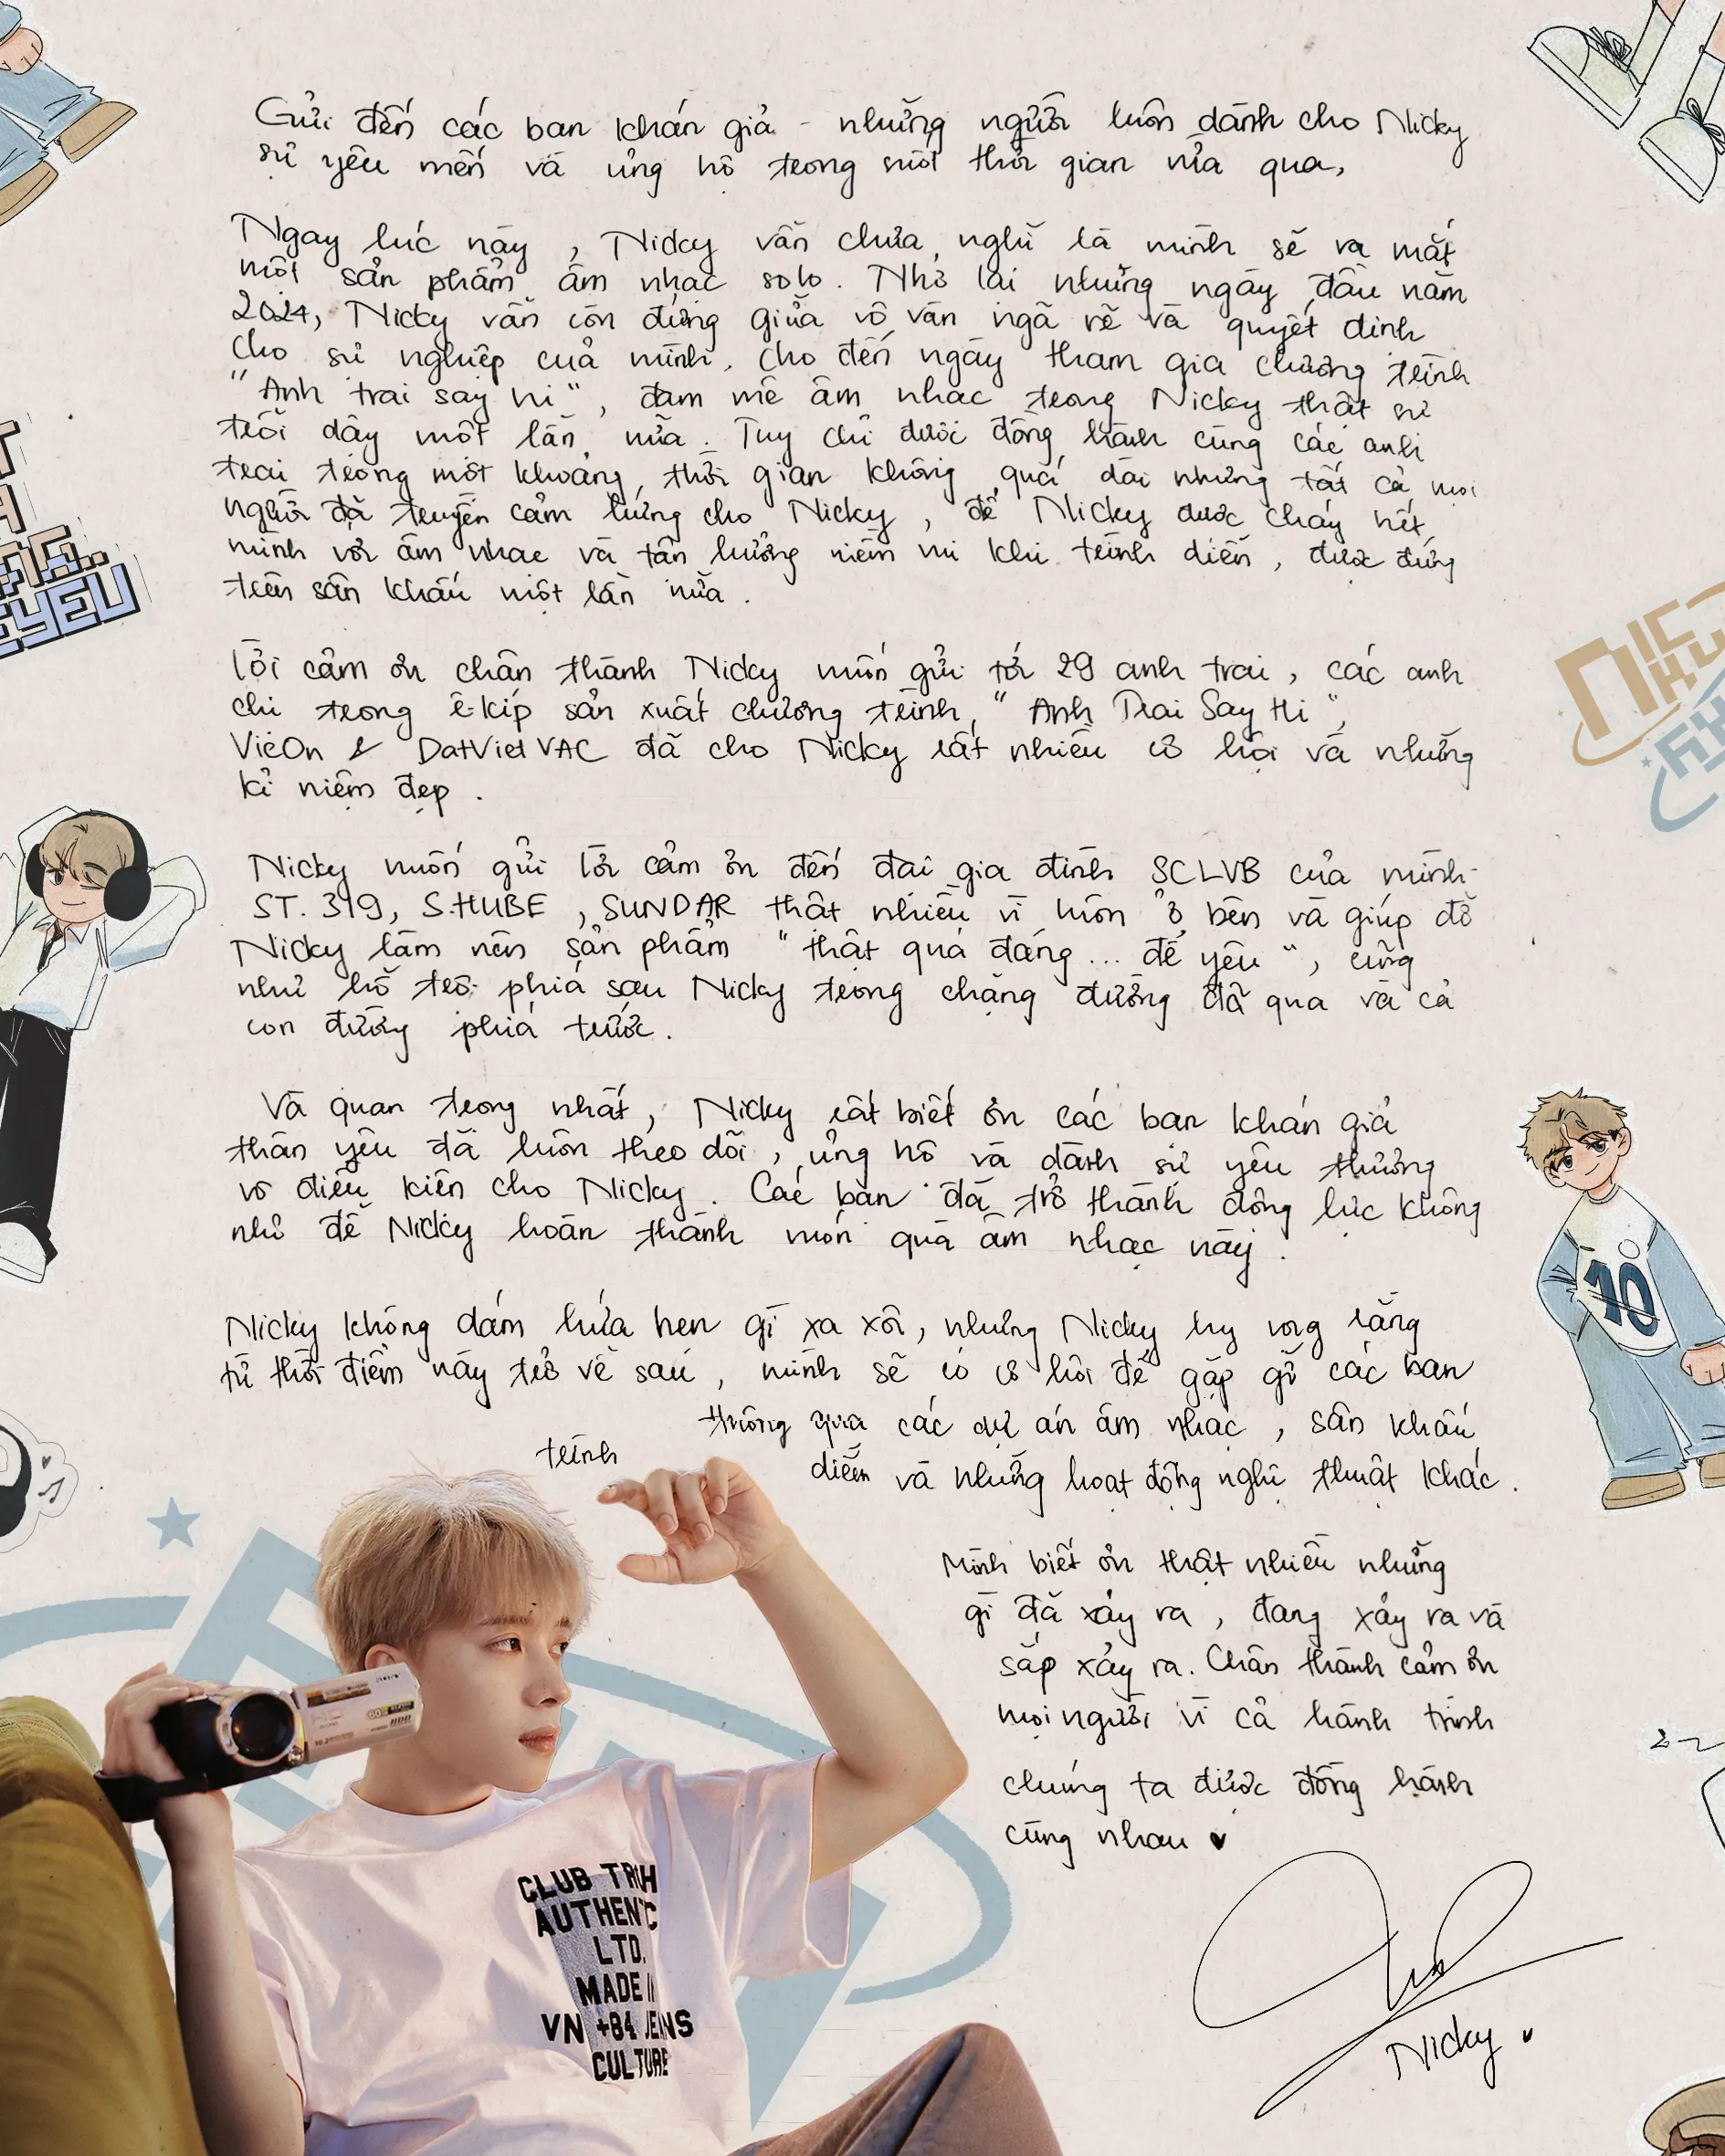 Gửi đến các bạn khán giả - những người luôn dành cho Nicky
sự yêu mến và ủng hộ trong suốt thời gian vừa qua,
Ngay lúc này, Nicky vẫn chưa nghĩ là mình sẽ ra mắt
một sản phẩm âm nhạc solo. Nhớ lại những ngày đầu năm
2024, Nicky vẫn còn đứng giữa vô vàn ngã rẽ và quyết định
cho sự nghiệp của mình. Cho đến ngày tham gia chương trình
"Anh trai say hi", đam mê âm nhạc trong Nicky thật sự
trỗi dậy một lần nữa. Tuy chỉ được đồng hành cùng các anh
trai trong một khoảng thời gian không quá dài nhưng tất cả mọi
người đã truyền cảm hứng cho Nicky, để Nicky được cháy hết
mình với âm nhạc và tận hưởng niềm vui khi trình diễn, được đứng
trên sân khấu một lần nữa.
Lời cảm ơn chân thành Nicky muốn gửi tới 29 anh trai, các anh
chị trong ê-kíp sản xuất chương trình "Anh Trai Say Hi",
VieOn & DatVietVAC đã cho Nicky rất nhiều cơ hội và những
kỉ niệm đẹp.
Nicky muốn gửi lời cảm ơn đến đại gia đình SCLVB của mình-
ST.319, S.HUBE, SUNDAR thật nhiều vì luôn ở bên và giúp đỡ
Nicky làm nên sản phẩm "thật quá đáng... để yêu", cũng
như hỗ trợ phía sau Nicky trong chặng đường đã qua và cả
con đường phía trước.
Và quan trọng nhất, Nicky rất biết ơn các bạn khán giả
thân yêu đã luôn theo dõi, ủng hộ và dành sự yêu thương
vô điều kiện cho Nicky. Các bạn đã trở thành động lực không
nhỏ để Nicky hoàn thành món quà âm nhạc này.
Nicky không dám hứa hẹn gì xa xôi, nhưng Nicky hy vọng rằng
từ thời điểm này trở về sau, mình sẽ có cơ hội để gặp gỡ các bạn
thông qua các dự án âm nhạc, sân khấu
trình diễn và những hoạt động nghệ thuật khác.
Mình biết ơn thật nhiều những
gì đã xảy ra, đang xảy ra và
sắp xảy ra. Chân thành cảm ơn
mọi người vì cả hành trình
chúng ta được đồng hành
cùng nhau
Nicky
CLUB
AUTHENTIC
LTD.
MADE
VN +84 JEANS
CULTURE
10